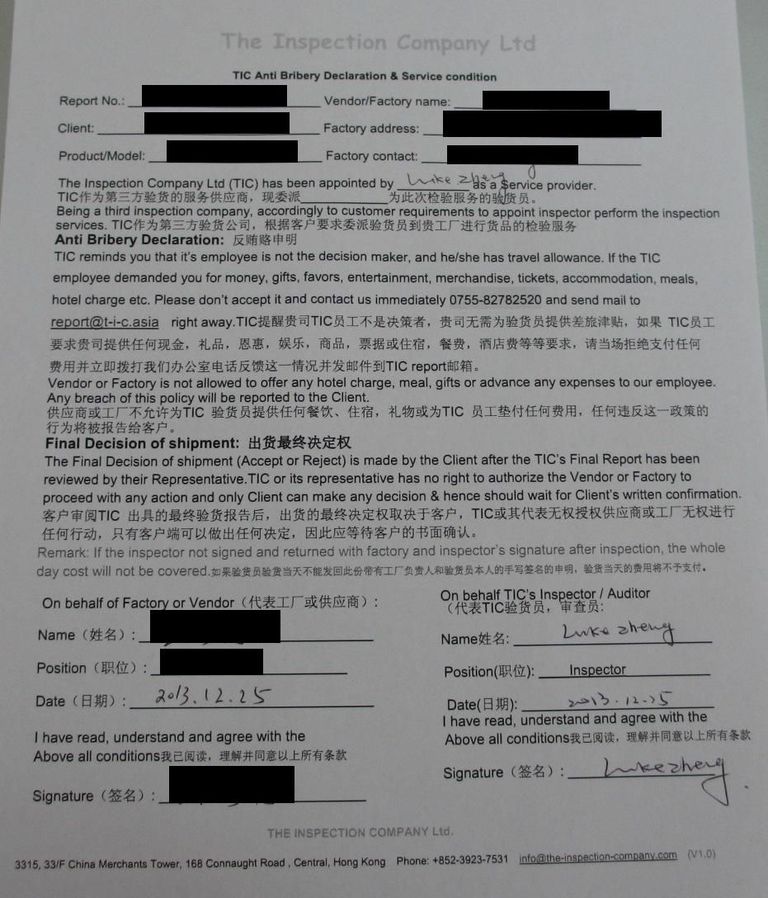 The Inspection Company Ltd
TIC Anti Bribery Declaration & Service condition
Report No.: Vendor/Factory name:
Client: Factory address:
Product/Model: Factory contact:
The Inspection Company Ltd (TIC) has been appointed by Luke zheng as a Service provider.
TIC作为第三方验货的服务供应商，现委派__________为此次检验服务的验货员。
Being a third inspection company, accordingly to customer requirements to appoint inspector perform the inspection
services. TIC作为第三方验货公司，根据客户要求委派验货员到贵工厂进行货品的检验服务
Anti Bribery Declaration: 反贿赂申明
TIC reminds you that it's employee is not the decision maker, and he/she has travel allowance. If the TIC
employee demanded you for money, gifts, favors, entertainment, merchandise, tickets, accommodation, meals,
hotel charge etc. Please don't accept it and contact us immediately 0755-82782520 and send mail to
report@t-i-c.asia right away.TIC提醒贵司TIC员工不是决策者，贵司无需为验货员提供差旅津贴，如果 TIC员工
要求贵司提供任何现金，礼品，恩惠，娱乐，商品，票据或住宿，餐费，酒店费等等要求，请当场拒绝支付任何
费用并立即拨打我们办公室电话反馈这一情况并发邮件到TIC report邮箱。
Vendor or Factory is not allowed to offer any hotel charge, meal, gifts or advance any expenses to our employee.
Any breach of this policy will be reported to the Client.
供应商或工厂不允许为TIC 验货员提供任何餐饮、住宿，礼物或为TIC 员工垫付任何费用，任何违反这一政策的
行为将被报告给客户。
Final Decision of shipment: 出货最终决定权
The Final Decision of shipment (Accept or Reject) is made by the Client after the TIC's Final Report has been
reviewed by their Representative.TIC or its representative has no right to authorize the Vendor or Factory to
proceed with any action and only Client can make any decision & hence should wait for Client's written confirmation.
客户审阅TIC 出具的最终验货报告后，出货的最终决定权取决于客户，TIC或其代表无权授权供应商或工厂无权进行
任何行动，只有客户端可以做出任何决定，因此应等待客户的书面确认。
Remark: If the inspector not signed and returned with factory and inspector's signature after inspection, the whole
day cost will not be covered.如果验货员验货当天不能发回此份带有工厂负责人和验货员本人的手写签名的申明，验货当天的费用将不予支付。
On behalf of Factory or Vendor（代表工厂或供应商）:
Name（姓名）:
Position（职位）:
Date（日期）: 2013.12.25
I have read, understand and agree with the
Above all conditions我已阅读，理解并同意以上所有条款
Signature（签名）:
On behalf TIC's Inspector / Auditor
（代表TIC验货员，审查员:
Name姓名: Luke zheng
Position(职位): Inspector
Date(日期): 2013.12.25
I have read, understand and agree with the
Above all conditions我已阅读，理解并同意以上所有条款
Signature（签名）: Luke zheng
THE INSPECTION COMPANY Ltd.
3315, 33/F China Merchants Tower, 168 Connaught Road , Central, Hong Kong Phone: +852-3923-7531 info@the-inspection-company.com (V1.0)